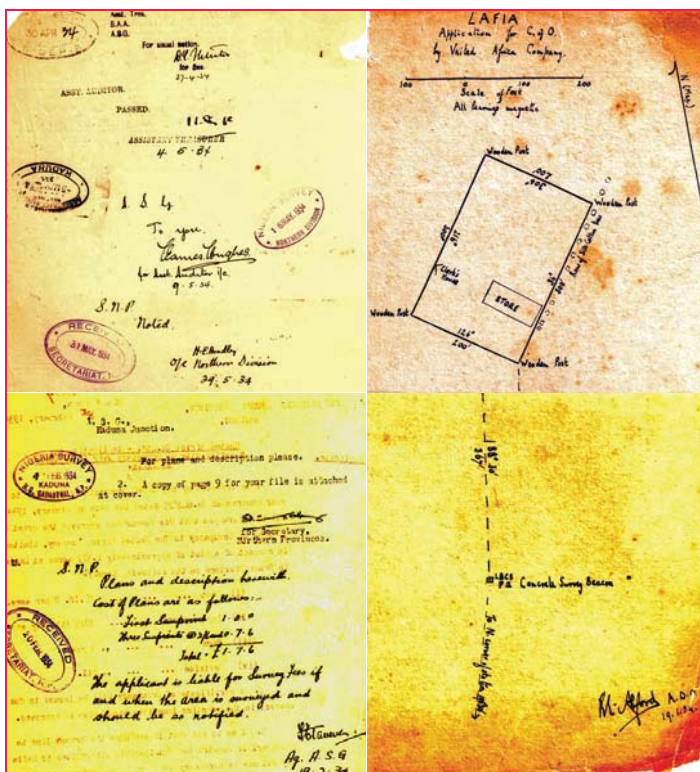 Asst. Tres.
S.A.A.
A.S.G.
30 APR 34
For usual action.
for Sec.
27-4-34
ASST. AUDITOR.
PASSED.
ASSISTANT TREASURER
4. 5. 34
KADUNA
A. S. G.
To you.
James Hughes
for Asst. Auditor i/c
9.5.34
NIGERIA SURVEY
1 MAY 1934
NORTHERN DIVISION
S.N.P.
Noted.
RECEIVED
31 MAY 1934
SECRETARIAT,
O/C Northern Division
29.5.34
LAFIA
Application for C. of O.
by United Africa Company.
100 0 100 200
Scale of Feet
All bearings magnetic
N (Mag.)
Wooden Post
200'
Wooden Post
Clerk's House
STORE
300'
Wooden Post
126°
200'
Wooden Post
A. S. G.,
Kaduna Junction.
For plans and description please.
2. A copy of page 9 for your file is attached
at cover.
NIGERIA SURVEY
FEB 1934
KADUNA
for Secretary,
Northern Provinces.
S.N.P.
Plans and description herewith.
Cost of Plans are as follows:-
First Sunprint 1. 0. 0
Three Sunprints @ 2/6 each 0. 7. 6
Total = £1. 7. 6
The applicant is liable for Survey Fees if
and when the area is surveyed and
should be so notified.
RECEIVED
20 FEB 1934
SECRETARIAT, N.P.
Ag. A.S.G
19.2.34
Concrete Survey Beacon
A.D.O